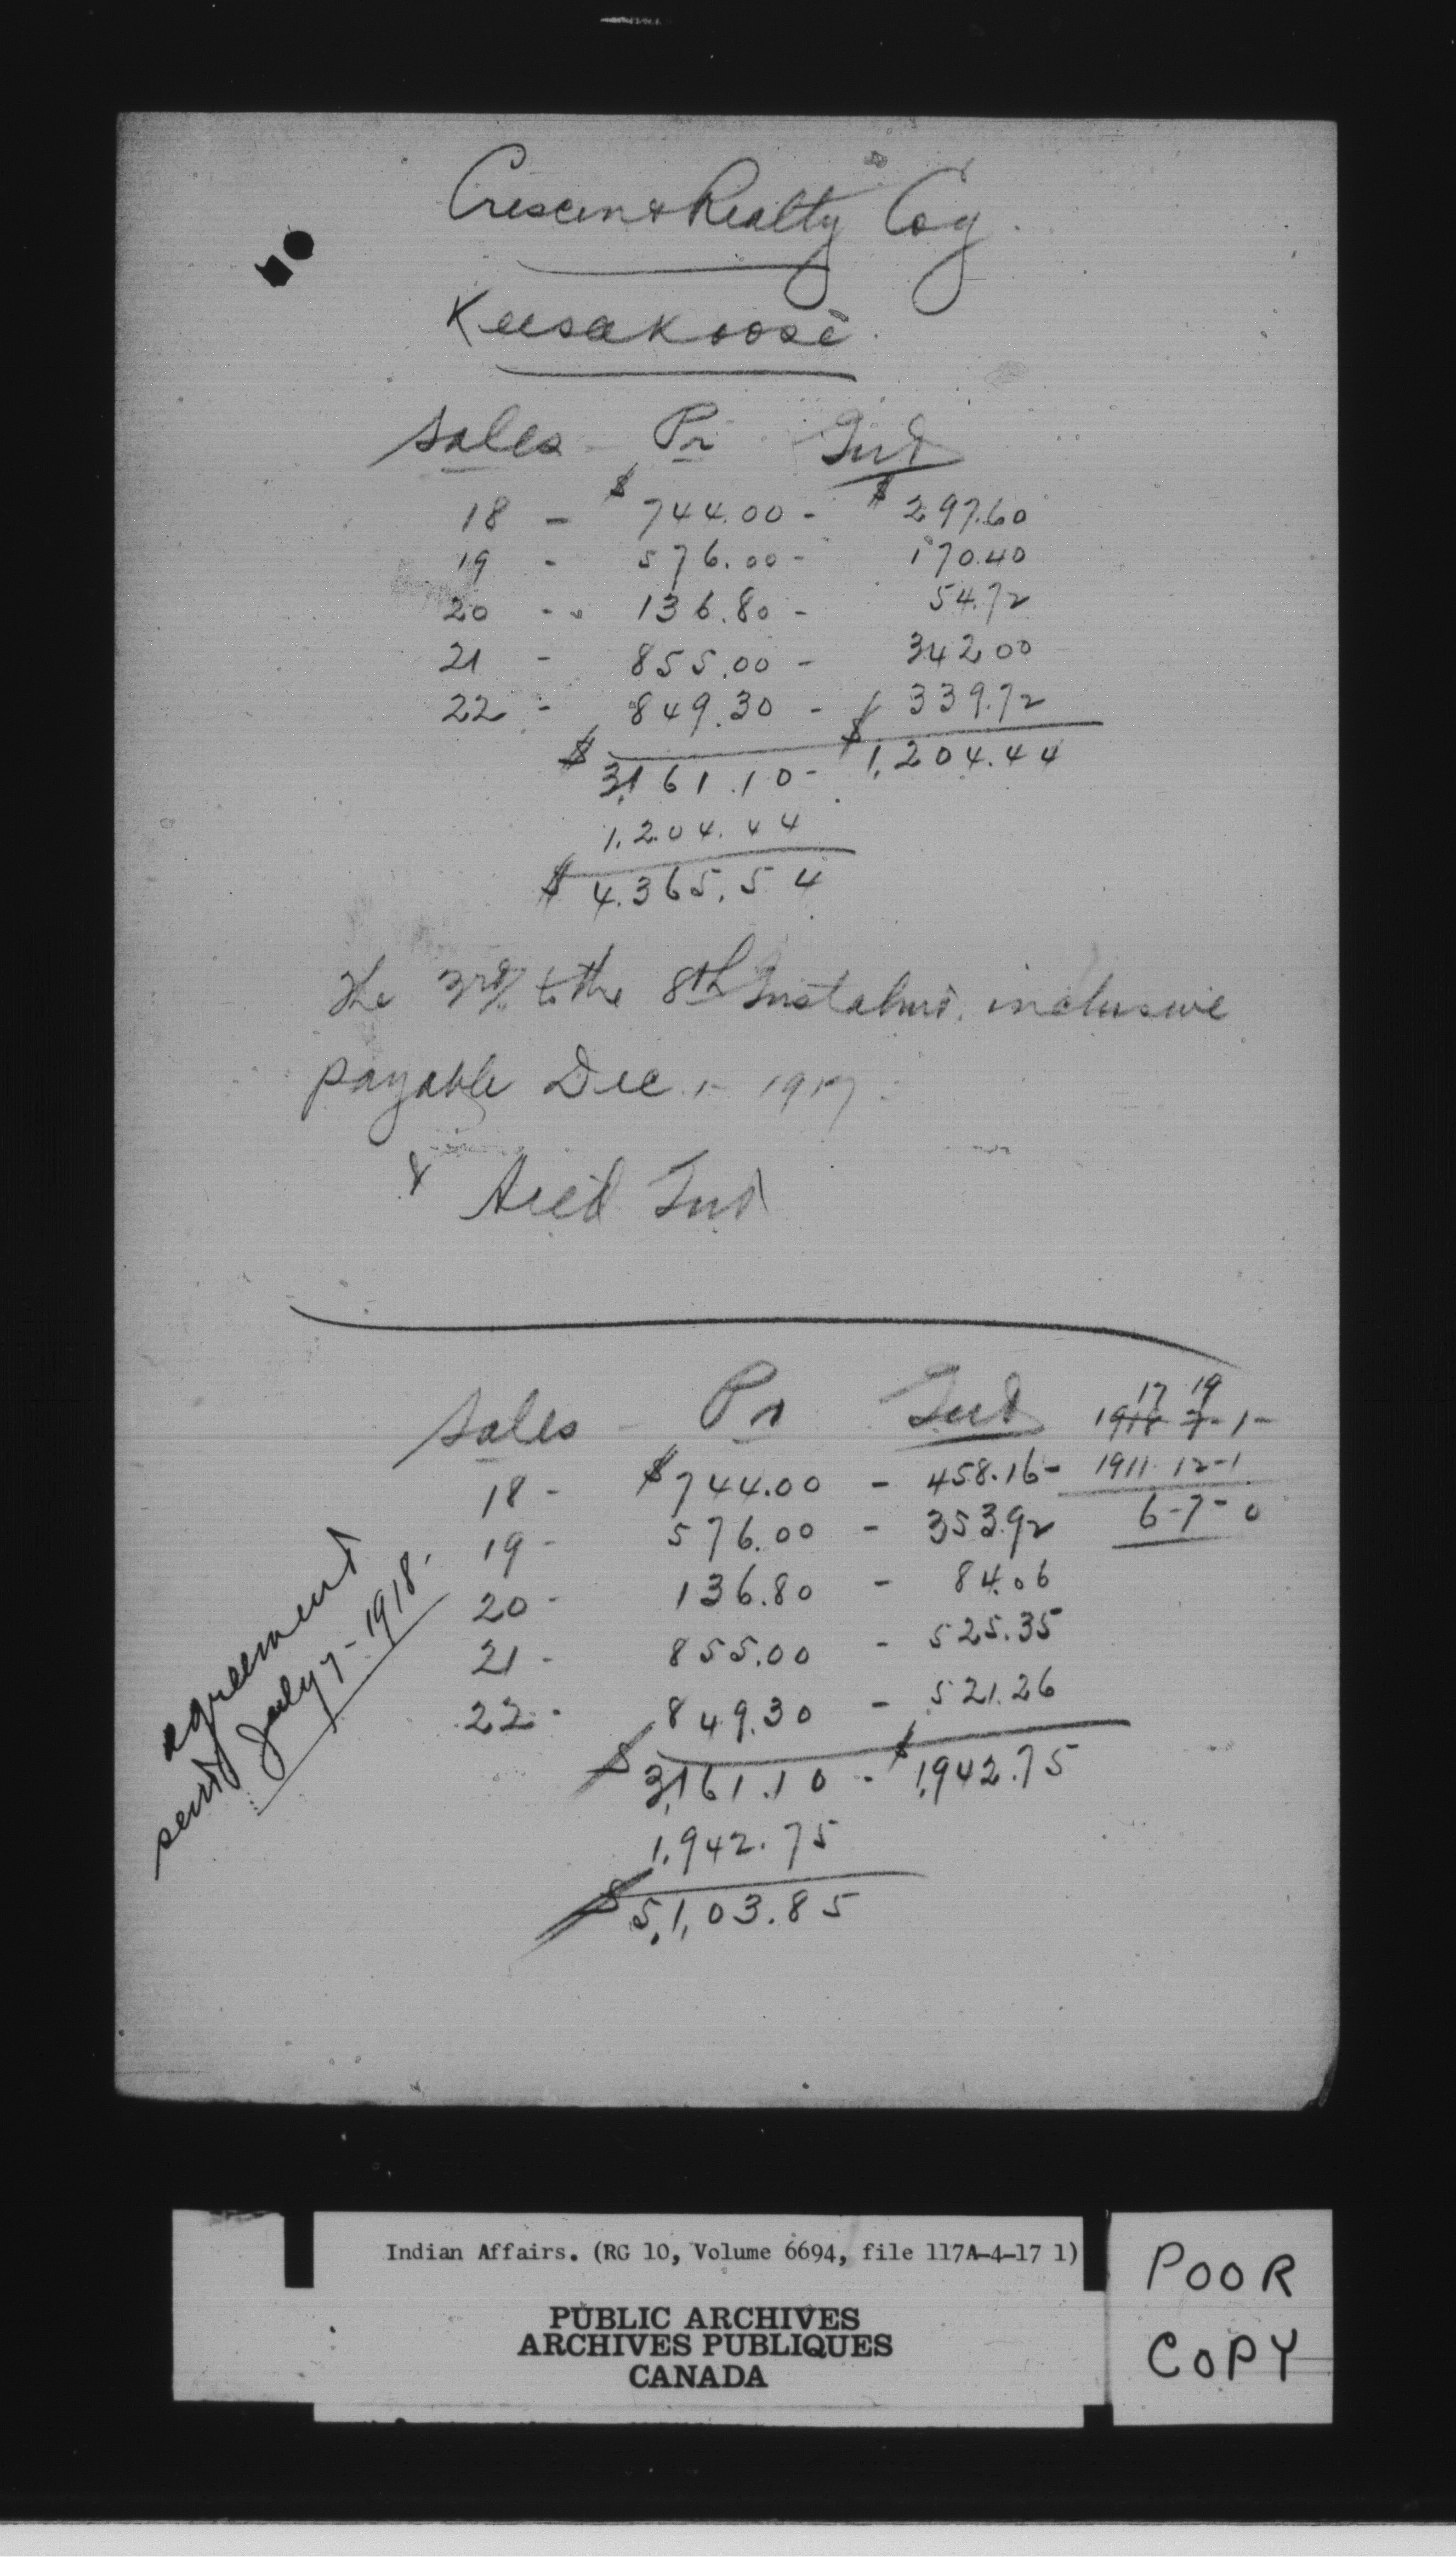 Crescent Realty Coy.
Keesakoose.
Sales - Pr Int
18 - $744.00 - $297.60
19 - 576.00 - 170.40
20 - 136.80 - 54.72
21 - 855.00 - 342.00
22 - 849.30 - 339.72
$3,161.10 - $1,204.44
1,204.44
$4.365.54
The 3rd to the 8th Instalmt. inclusive
payable Dec. 1 - 1917.
& Acc'd Int
Sales - Pr Int
17 19
1918 7-1-
18 - $744.00 - 458.16 - 1911 12-1
19 - 576.00 - 353.92 6-7-0
20 - 136.80 - 84.06
21 - 855.00 - 525.35
22 - 849.30 - 521.26
$3,161.10 - $1,942.75
1,942.75
$5,1,03.85
agreement
sent July 7 - 1918.
Indian Affairs. (RG 10, Volume 6694, file 117A-4-17 1)
PUBLIC ARCHIVES
ARCHIVES PUBLIQUES
CANADA
POOR
COPY